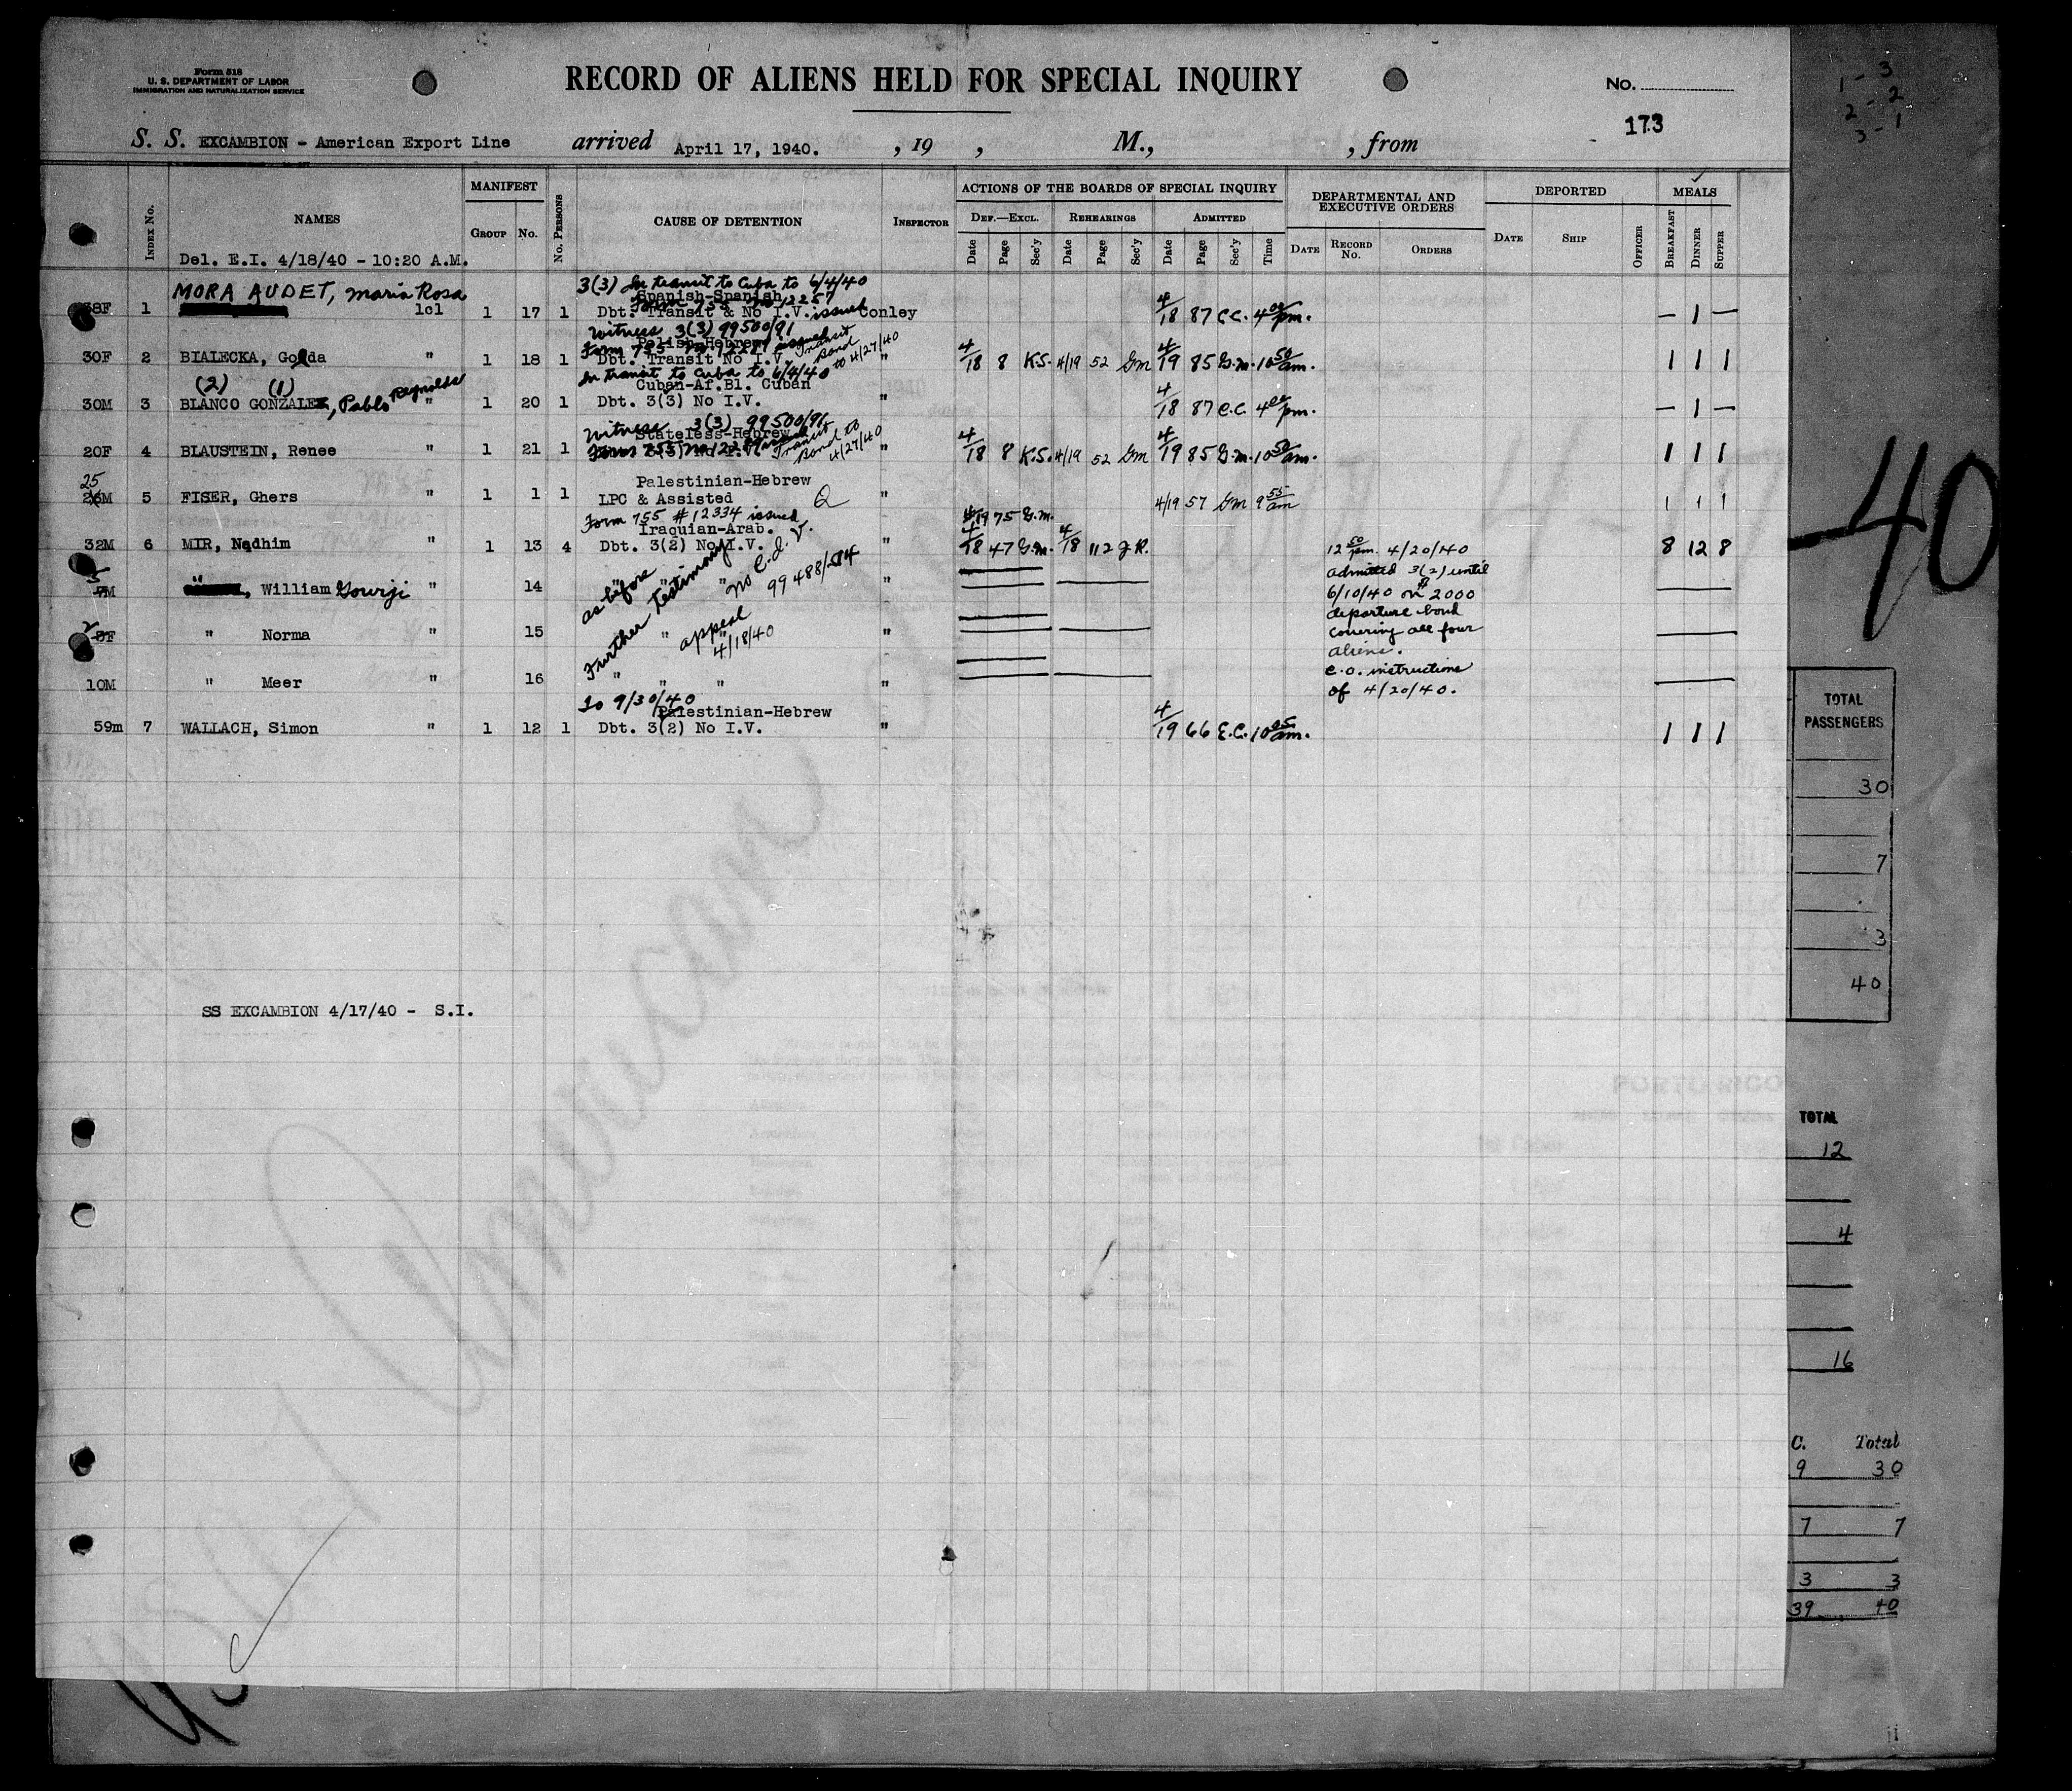 Form 518
U. S. DEPARTMENT OF LABOR
IMMIGRATION AND NATURALIZATION SERVICE
RECORD OF ALIENS HELD FOR SPECIAL INQUIRY
No.
173
S. S. EXCAMBION - American Export Line arrived April 17, 1940. , 19 , M., , from
INDEX No. NAMES MANIFEST GROUP No. No. PERSONS CAUSE OF DETENTION INSPECTOR ACTIONS OF THE BOARDS OF SPECIAL INQUIRY DEPARTMENTAL AND EXECUTIVE ORDERS DEPORTED MEALS
DEF.—EXCL. REHEARINGS ADMITTED
Date Page Sec'y Date Page Sec'y Date Page Sec'y Time DATE RECORD No. ORDERS DATE SHIP OFFICER BREAKFAST DINNER SUPPER
Del. E.I. 4/18/40 - 10:20 A.M.
3(3) In transit to Cuba to 6/4/40
MORA AUDET, Maria Rosa
Spanish-Spanish
Form 755 No 12257 issued
38F 1 1cl 1 17 1 Dbt. Transit & No I.V. Conley 4/18 87 E.C. 4 00 pm. — 1 —
Witness 3(3) 99500/91
Polish-Hebrew
30F 2 BIALECKA, Golda " 1 18 1 Dbt. Transit No I.V. Transit Bond to 4/27/40 " 4/18 8 K.S. 4/19 52 Gm 4/19 85 G.m. 10 50 am. 1 1 1
In transit to Cuba to 6/4/40
Cuban-Af.Bl. Cuban
(2) (1) Reynolds
30M 3 BLANCO GONZALEZ, Pablo " 1 20 1 Dbt. 3(3) No I.V. " 4/18 87 E.C. 4 00 pm. — 1 —
Witness 3(3) 99500/91
Stateless-Hebrew
20F 4 BLAUSTEIN, Renee " 1 21 1 Transit Bond to 4/27/40 " 4/18 8 K.S. 4/19 52 Gm 4/19 85 G.m. 10 50 am. 1 1 1
25 Palestinian-Hebrew
26M 5 FISER, Ghers " 1 1 1 LPC & Assisted Q " 4/19 57 Gm 9 55 am 1 1 1
Form 755 #12334 issued 4/19 75 G.m.
Iraquian-Arab.
32M 6 MIR, Nadhim " 1 13 4 Dbt. 3(2) No I.V. " 4/18 47 G.m. 4/18 112 J.R. 12 50 pm. 4/20/40 8 12 8
admitted 3(2) until
5
7M , William Gourji " 14 " " " " 6/10/40 on $2000
as before No C.d.V.
99488/514
departure bond
2
5F " Norma " 15 " " " covering all four
Further testimony
appeal
4/18/40
aliens.
C.O. instructions
10M " Meer " 16 " " " " of 4/20/40.
To 9/30/40
Palestinian-Hebrew
59m 7 WALLACH, Simon " 1 12 1 Dbt. 3(2) No I.V. " 4/19 66 E.C. 10 05 am. 1 1 1
SS EXCAMBION 4/17/40 - S.I.
American
1 - 3
2 - 2
3 - 1
-40
TOTAL
PASSENGERS
30
7
3
40
PORTO RICO
TOTAL
12
4
16
C. Total
9 30
7 7
3 3
39 40